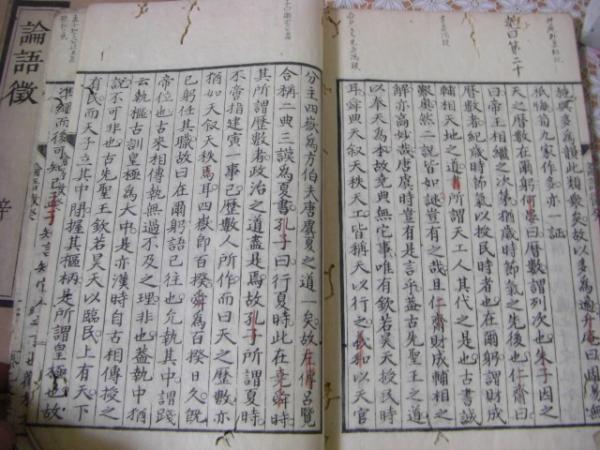 堯曰第二十
天之曆數在爾躬何晏曰曆數謂列次也朱子因之
曰帝王相繼之次第猶歲時節氣之先後也仁齋曰
曆數者紀歲時節氣以授民時者也在爾躬謂財成
輔相天地之道者所謂天工人其代之是也古書誠
艱奧然二說皆如謎豈有之哉且仁齋財成輔相之
解亦高妙哉唐虞時豈有是言乎蓋古先聖王之道
以奉天為本故堯典無它事唯有欽若昊天授民時
耳舜典天叙天秩天工皆稱天以行之羲和以天官
分主四嶽為方伯夫唐虞夏之道一矣故左傳呂覽
合稱二典三謨為夏書孔子曰行夏時此在堯舜時
其所謂歷數者政治之道盡是焉故孔子所謂夏時
不啻指建寅一事已歷數人所作而曰天之歷數亦
猶如天叙天秩焉耳四嶽即百揆舜為百揆日久既
已躬任其職故曰在爾躬語已往也允執其中謂踐
帝位也古來相傳執無過不及之理非也蓋執中猶
云執樞古訓皇極為大中是亦漢時自古相傳授之
說不可非也古先聖王欽若昊天以臨民上有天下
有民而天子立其中握其樞柄是所謂皇極也故
準經而後可知已
論語徵